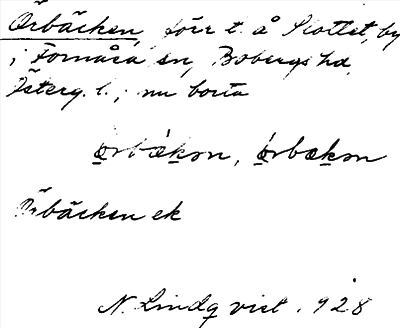 Örbäcken, förr t. å Slottet, by
i Fornåsa sn, Bobergs hd,
Österg. l.; nu borta
ørbækən, ørbækən
Örbäcken ek
N. Lindqvist. 1928